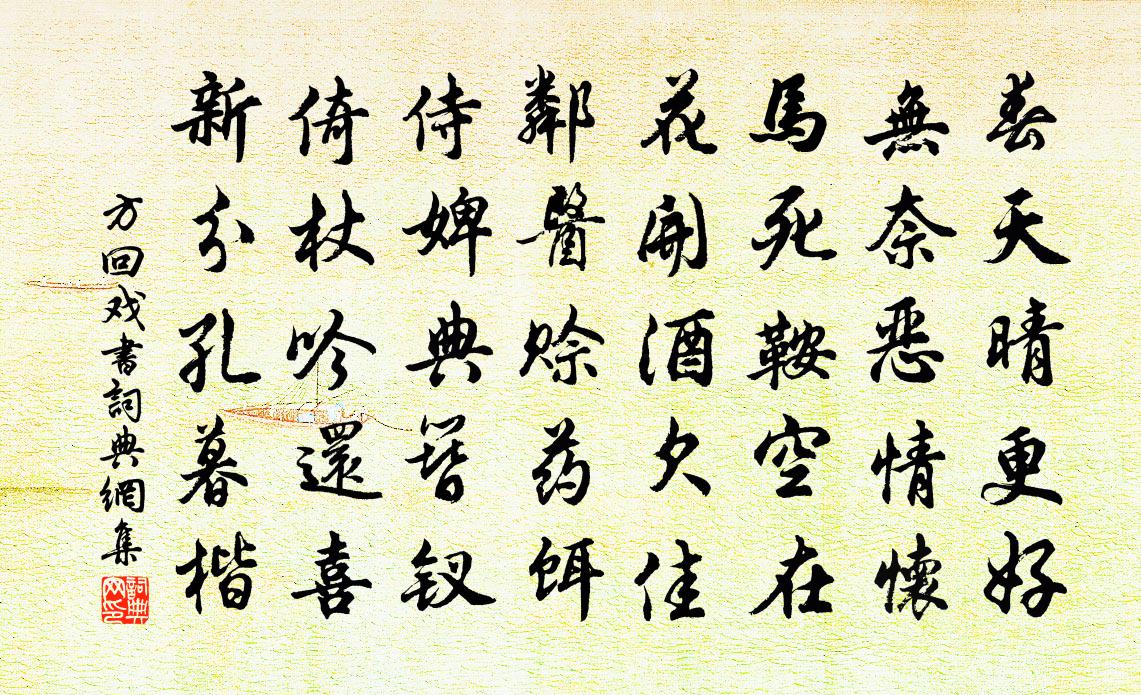 春天晴更好
無奈恶情懷
馬死鞍空在
花開酒欠佳
鄰醫赊药饵
侍婢典簪钗
倚杖吟還喜
新分孔暮楷
方回戏書詞典網集
詞典网印